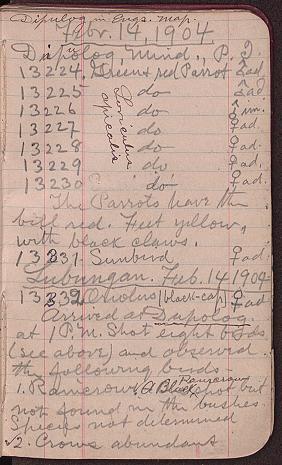 Dipulog in Engs. map.
Febr. 14, 1904
Dapulog, Mind., P. I.
13224, Green & red Parrot ♂ad.
13225 do ♂ad
13226 do ♂ im.
13227 do ♀ad.
13228 do ♀ad.
13229 do ♀ad.
13230 do ♀ ad.
Loriculus apicalis
The Parrots have the
bill red. Feet yellow,
with black claws.
13231 - Sunbird ♀ad.
Lubungan. Feb. 14 1904-
13232 Oriolus [black-cap] ♀ad
Arrived at Dapolog
at 1 P.M. Shot eight birds
(see above) and observed
the following birds-
1. Raincrow? A Black Raincrow shot but
not found in the bushes.
Species not determined
2. Crows abundant